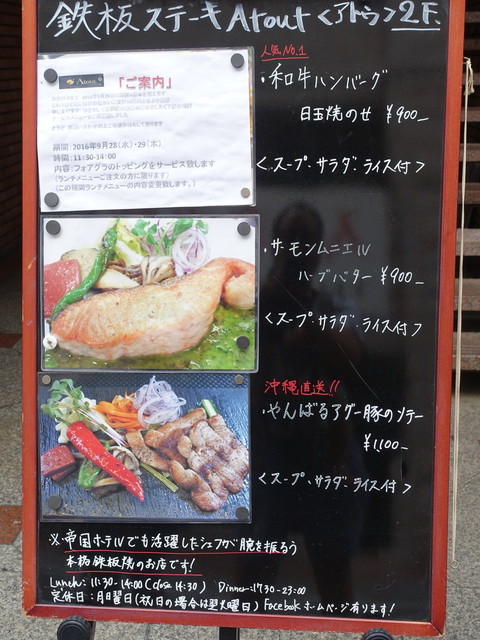 鉄板ステーキ Atout <アトゥ> 2F.
Atout
「ご案内」
期間:2016年9月28(水)・29(木)
時間:11:30-14:00
内容:フォアグラのトッピングをサービス致します
(ランチメニューご注文の方に限ります)
(この期間ランチメニューの内容変更致します。)
人気No.1
・和牛ハンバーグ
目玉焼のせ ¥900-
<スープ・サラダ・ライス付>
・サーモンムニエル
ハーブバター ¥900-
<スープ・サラダ・ライス付>
沖縄直送!!
・やんばるアグー豚のソテー
¥1,100-
<スープ・サラダ・ライス付>
※帝国ホテルでも活躍したシェフが腕を振るう
本格鉄板焼のお店です!
Lunch: 11:30-14:00 (close 14:30) Dinner: 17:30-23:00
定休日:月曜日(祝日の場合は翌火曜日) Facebookホームページ有ります!